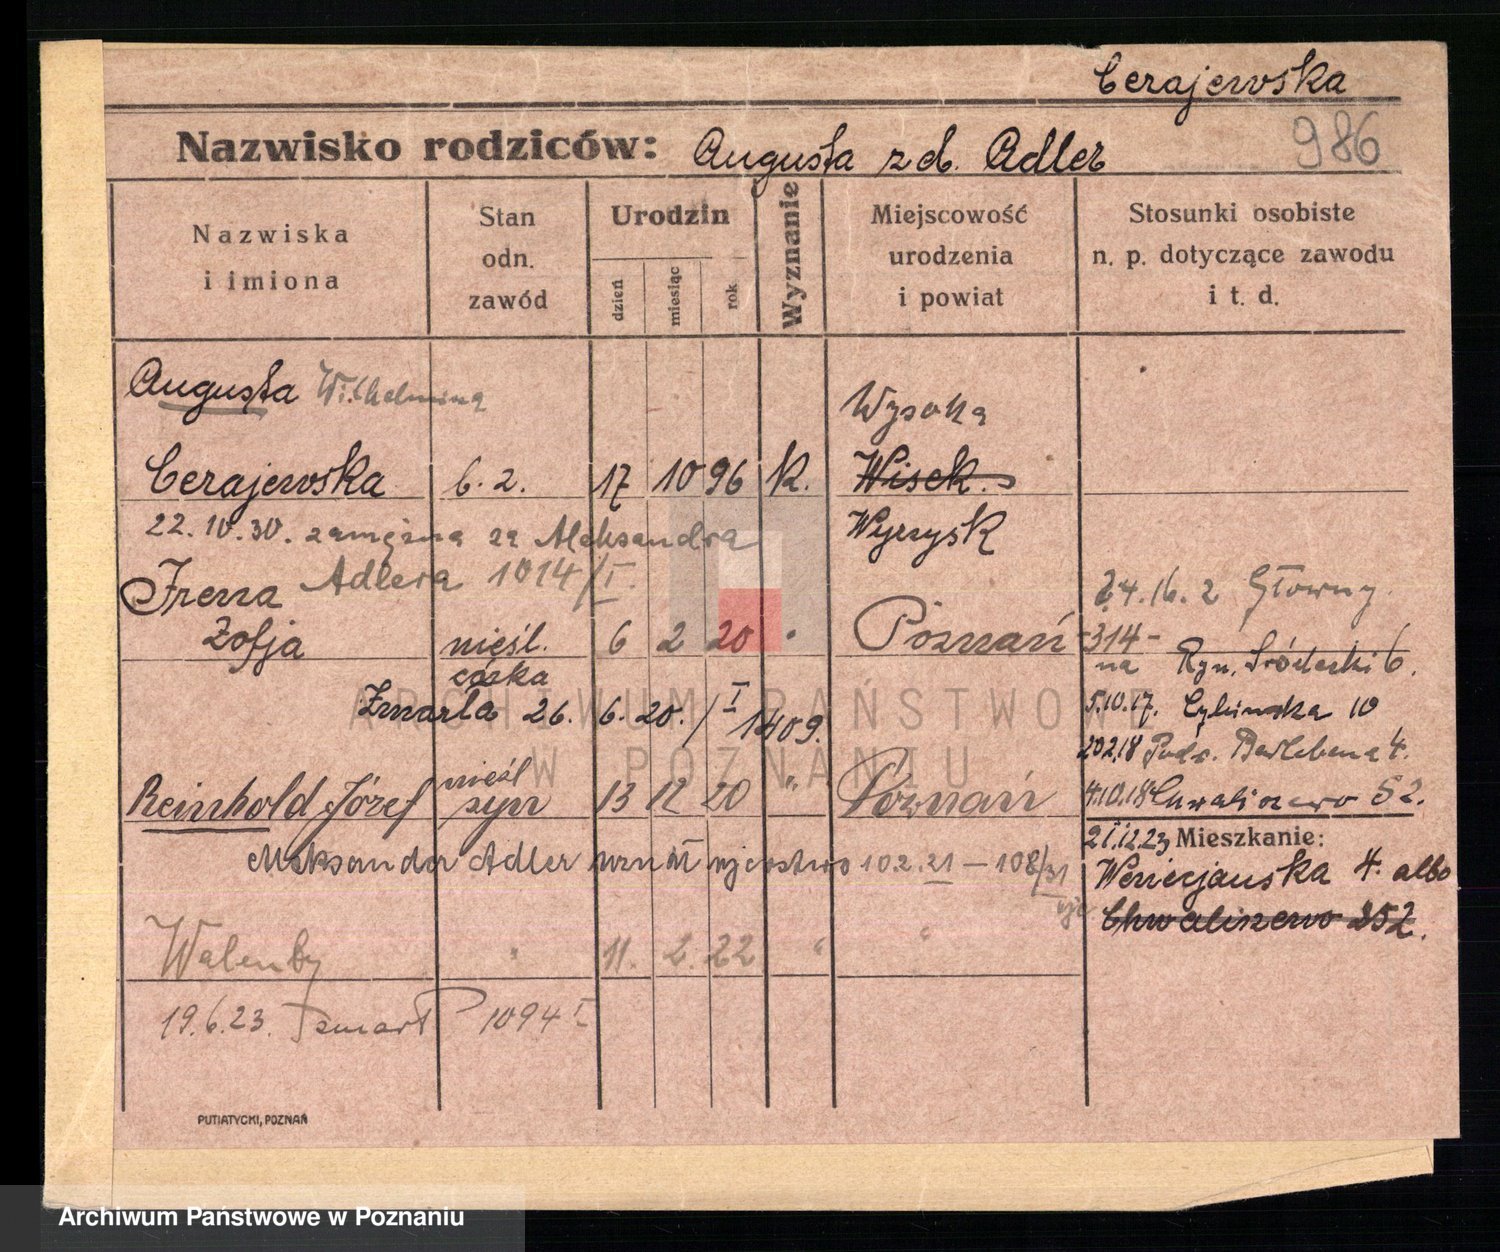 Cerajewska
986
Nazwisko rodziców: Augusta zd. Adler
Nazwiska i imiona
Stan odn. zawód
Urodzin
dzień
miesiąc
rok
Wyznanie
Miejscowość urodzenia i powiat
Stosunki osobiste n. p. dotyczące zawodu i t. d.
Augusta Wilhelmina
Wysoka
Cerajewska 6.2. 17 10 96 K. Wisek.
22.10.30. zamężna za Aleksandra
Wyrzysk
Adlera 1014/I.
Irena
Zofja nieśl. 6 2 20 Poznań
córka
24.16.2 Główny
-314-
na Ryn. Śródecki 6.
Zmarła 26. 6. 20. /I 1409.
5.10.17. Cybinska 10
20.2.18
4.
nieśl
Reinhold Józef syn 13 12 20 " Poznań
4.10.18 Chwaliszewo 52.
21.12.23 Mieszkanie:
Aleksander Adler uznał ojcostwo 10.2.21 – 108/31
Wenecjanska 4. albo
Chwaliszewo 52.
Walenty " 11. 2. 22 " "
19.6.23. zmarł 1094 I
PUTIATYCKI, POZNAŃ
ARCHIWUM PAŃSTWOWE
W POZNANIU
Archiwum Państwowe w Poznaniu